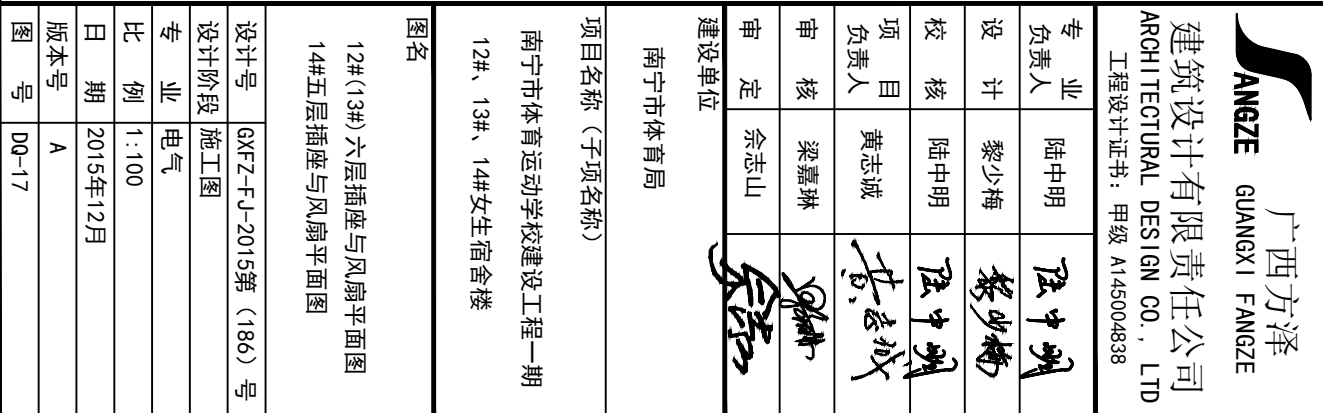 ANGZE
广西方泽
GUANGXI FANGZE
建筑设计有限责任公司
ARCHITECTURAL DESIGN CO., LTD
工程设计证书：甲级 A145004838
专业负责人 陆中明 陆中明
设计 黎少梅 黎少梅
校核 陆中明 陆中明
项目负责人 黄志诚 黄志诚
审核 梁嘉琳
审定 佘志山
建设单位
南宁市体育局
项目名称（子项名称）
南宁市体育运动学校建设工程一期
12#、13#、14#女生宿舍楼
图名
12#(13#)六层插座与风扇平面图
14#五层插座与风扇平面图
设计号 GXFZ-FJ-2015第（186）号
设计阶段 施工图
专业 电气
比例 1:100
日期 2015年12月
版本号 A
图号 DQ-17